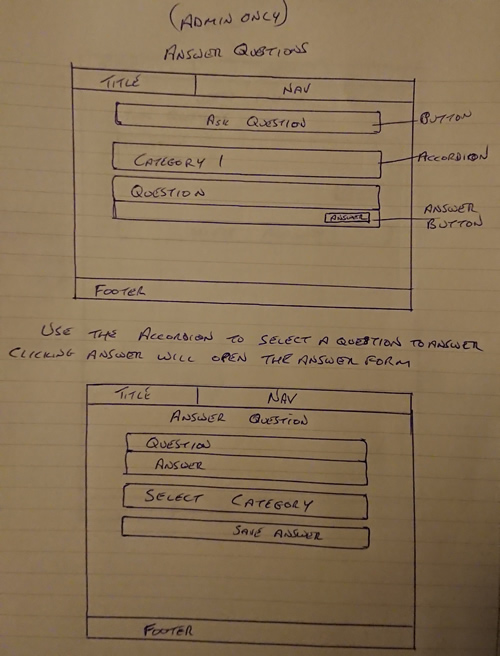 (ADMIN ONLY)
ANSWER QUESTIONS
TITLE NAV
ASK QUESTION
BUTTON
CATEGORY 1
ACCORDION
QUESTION
ANSWER
ANSWER
BUTTON
FOOTER
USE THE ACCORDION TO SELECT A QUESTION TO ANSWER
CLICKING ANSWER WILL OPEN THE ANSWER FORM
TITLE NAV
ANSWER QUESTION
QUESTION
ANSWER
SELECT CATEGORY
SAVE ANSWER
FOOTER